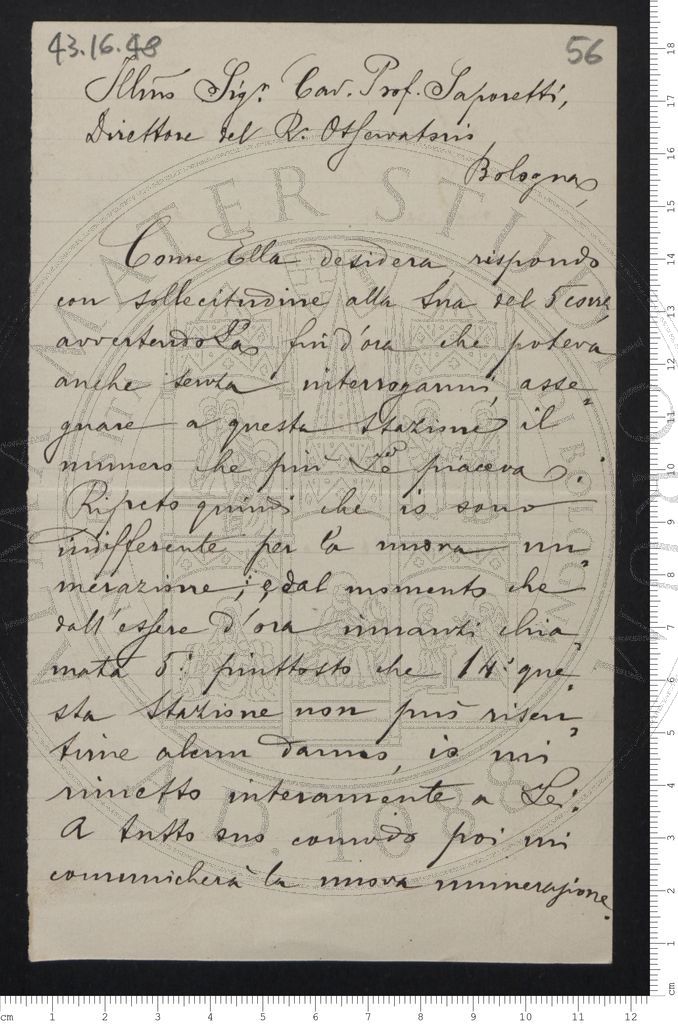 43.16.48
56
Illmo Sigr. Cav. Prof. Saporetti,
Direttore del R. Osservatorio
Bologna,
Come Ella desidera, rispondo
con sollecitudine alla Sua del 5 corre
avvertendola fin d'ora che poteva
anche senza interrogarmi, asse=
gnare a questa Stazione il
numero che più Le piaceva.
Ripeto quindi che io sono
indifferente per la nuova nu=
merazione; e dal momento che
dall'essere d'ora innanzi chia=
mata 5a piuttosto che 14a que=
sta Stazione non può risen=
tirne alcun danno, io mi
rimetto interamente a Lei.
A tutto suo comodo poi mi
comunicherà la nuova numerazione.
ALMA MATER STUDIORUM
A.D. 1088
cm
1 2 3 4 5 6 7 8 9 10 11 12
cm
1 2 3 4 5 6 7 8 9 10 11 12 13 14 15 16 17 18